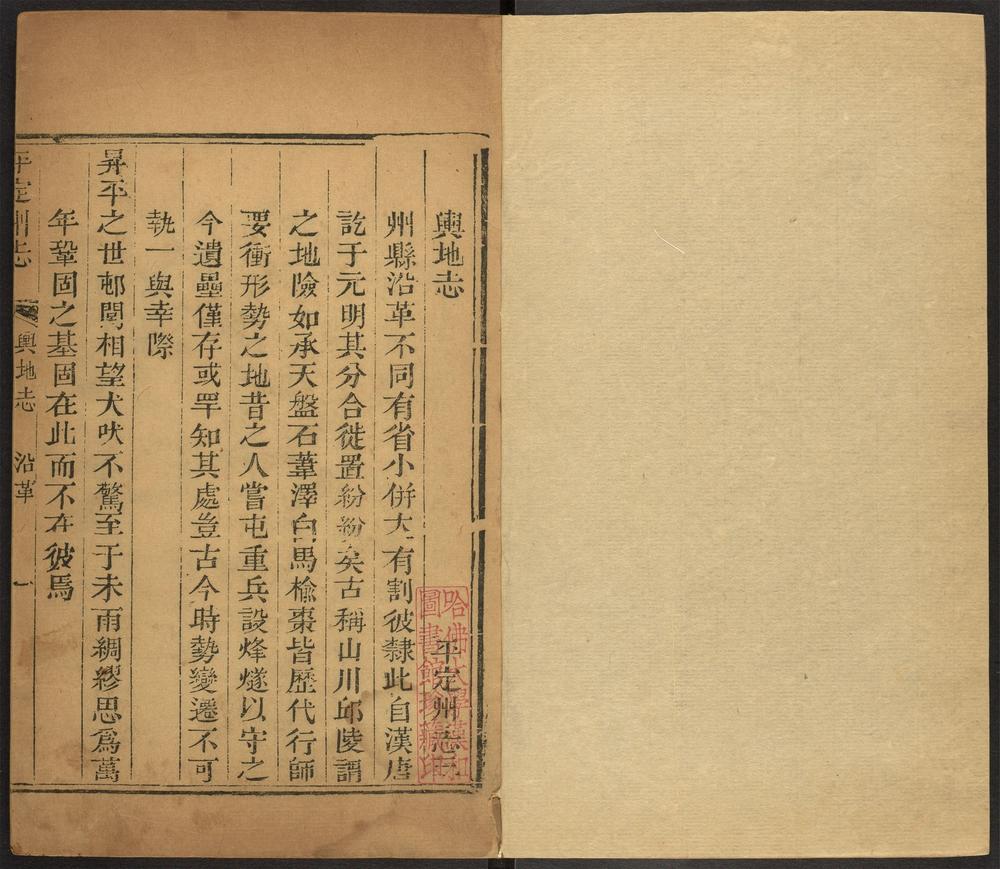 輿地志 平定州志三
州縣沿革不同有省小併大有割彼隸此自漢唐
訖于元明其分合徙置紛紛矣古稱山川邱陵謂
之地險如承天盤石葦澤白馬榆棗皆歷代行師
要衝形勢之地昔之人嘗屯重兵設烽燧以守之
今遺壘僅存或罕知其處豈古今時勢變遷不可
執一與幸際
昇平之世邨閭相望犬吠不驚至于未雨綢繆思爲萬
年鞏固之基固在此而不在彼焉
平定州志 輿地志 沿革 一
哈佛大學漢和
圖書館珍藏印